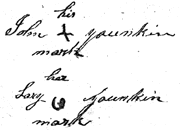 his
John X younkin
mark
her
Lary younkin
mark